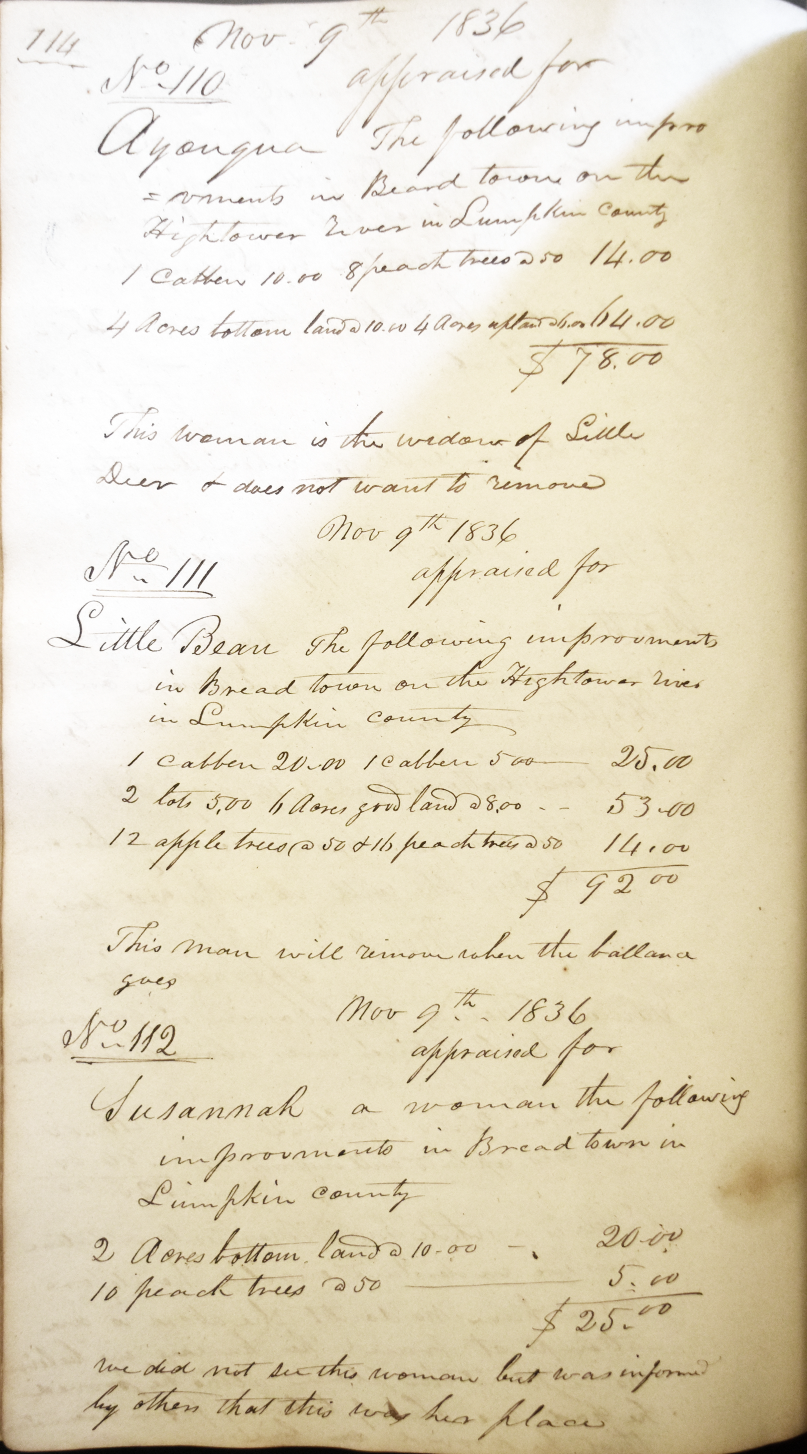 114
Nov 9th 1836
No 110 appraised for
Ayouqua The following impro
= vments in Beard town on the
Hightower River in Lumpkin county
1 Cabben 10.00 8 peach trees @ 50 14.00
4 Acres bottom land @ 10.00 4 Acres upland @ 6.00 64.00
$ 78.00
This woman is the widow of Little
Deer & does not want to remove
Nov 9th 1836
No 111 appraised for
Little Bean The following improvments
in Bread town on the Hightower River
in Lumpkin county
1 cabben 20.00 1 cabben 5 00 25.00
2 lots 5,00 6 Acres good land @ 8.00 - - 53.00
12 apple trees @ 50 & 16 peach trees @ 50 14.00
$ 92 00
This man will remove when the ballance
goes
Nov 9th 1836
No 112 appraised for
Susannah a woman the following
improvments in Bread town in
Lumpkin county
2 Acres bottom land @ 10-00 - 20.00
10 peach trees @ 50 5.00
$ 25.00
we did not see this woman but was informd
by others that this was her place